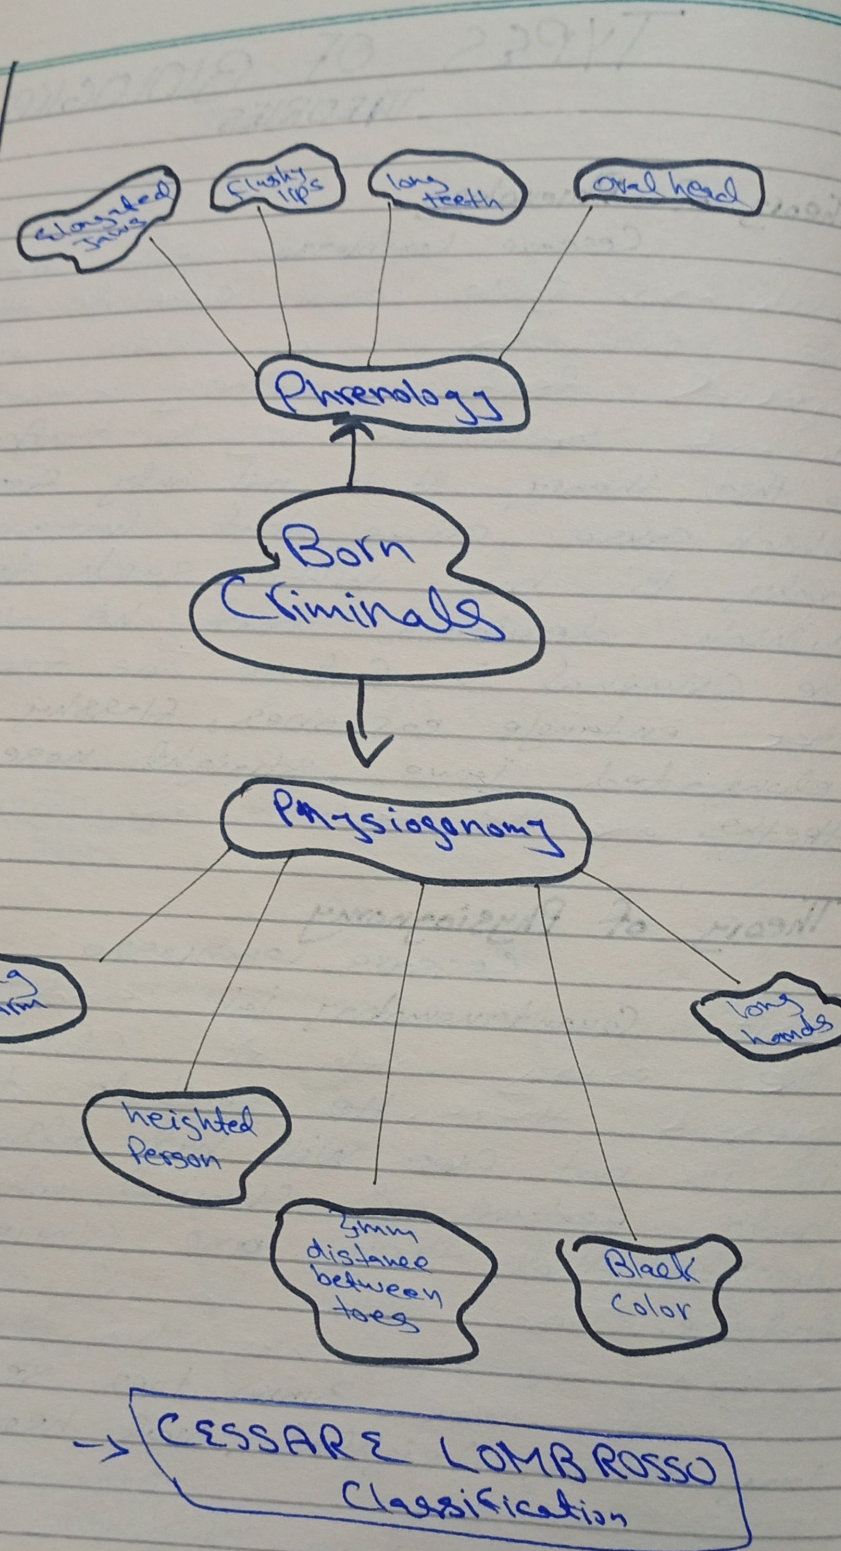 Elongated
Jaws
flushy
lips
long
teeth
oval head
Phrenology
Born
Criminals
Physiogonomy
long
hands
heighted
Person
3mm
distance
between
toes
Black
color
→ CESSARE LOMBROSSO
Classification